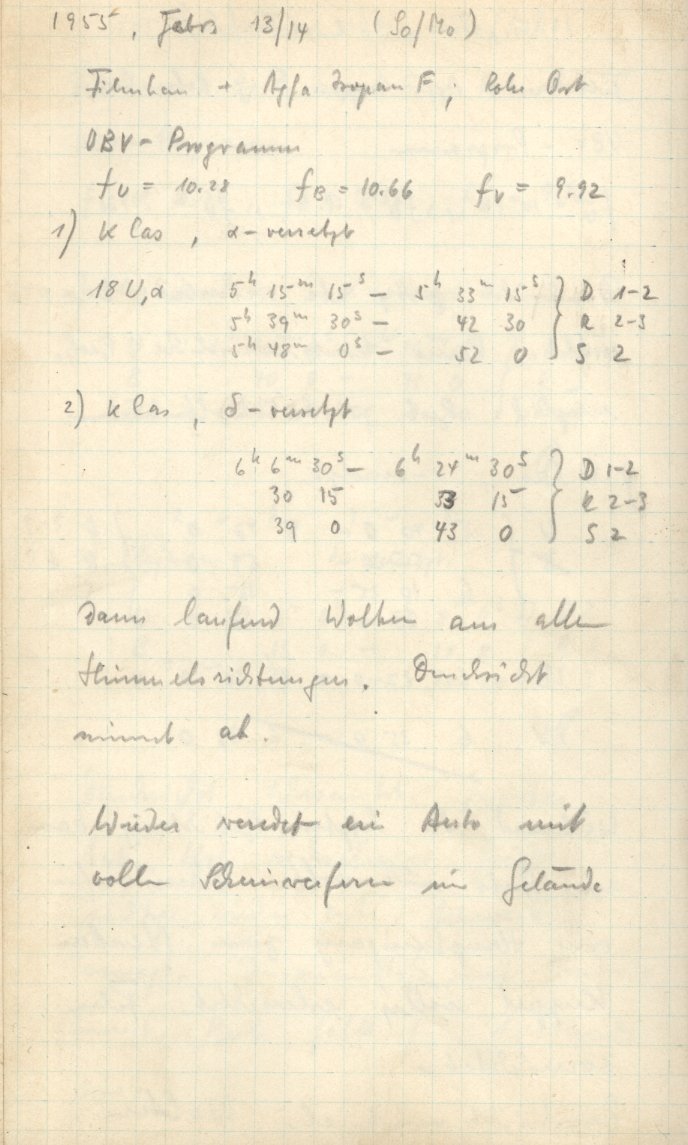 1955, Febr 13/14 (So/Mo)
+ Agfa Isopan F; Ort
UBV-Programm
fU = 10.28 fB = 10.66 fV = 9.92
1) K Cas, α-versetzt
18 U, α 5h 15m 15s – 5h 33m 15s } D 1-2
5h 39m 30s – 42 30 R 2-3
5h 48m 0s – 52 0 S 2
2) K Cas, δ-versetzt
6h 6m 30s – 6h 24m 30s } D 1-2
30 15 33 15 R 2-3
39 0 43 0 S 2
Dann laufend Wolken aus allen
Himmelsrichtungen. Durchsicht
nimmt ab.
Wieder ein Auto mit
vollen Scheinwerfern im Gelände